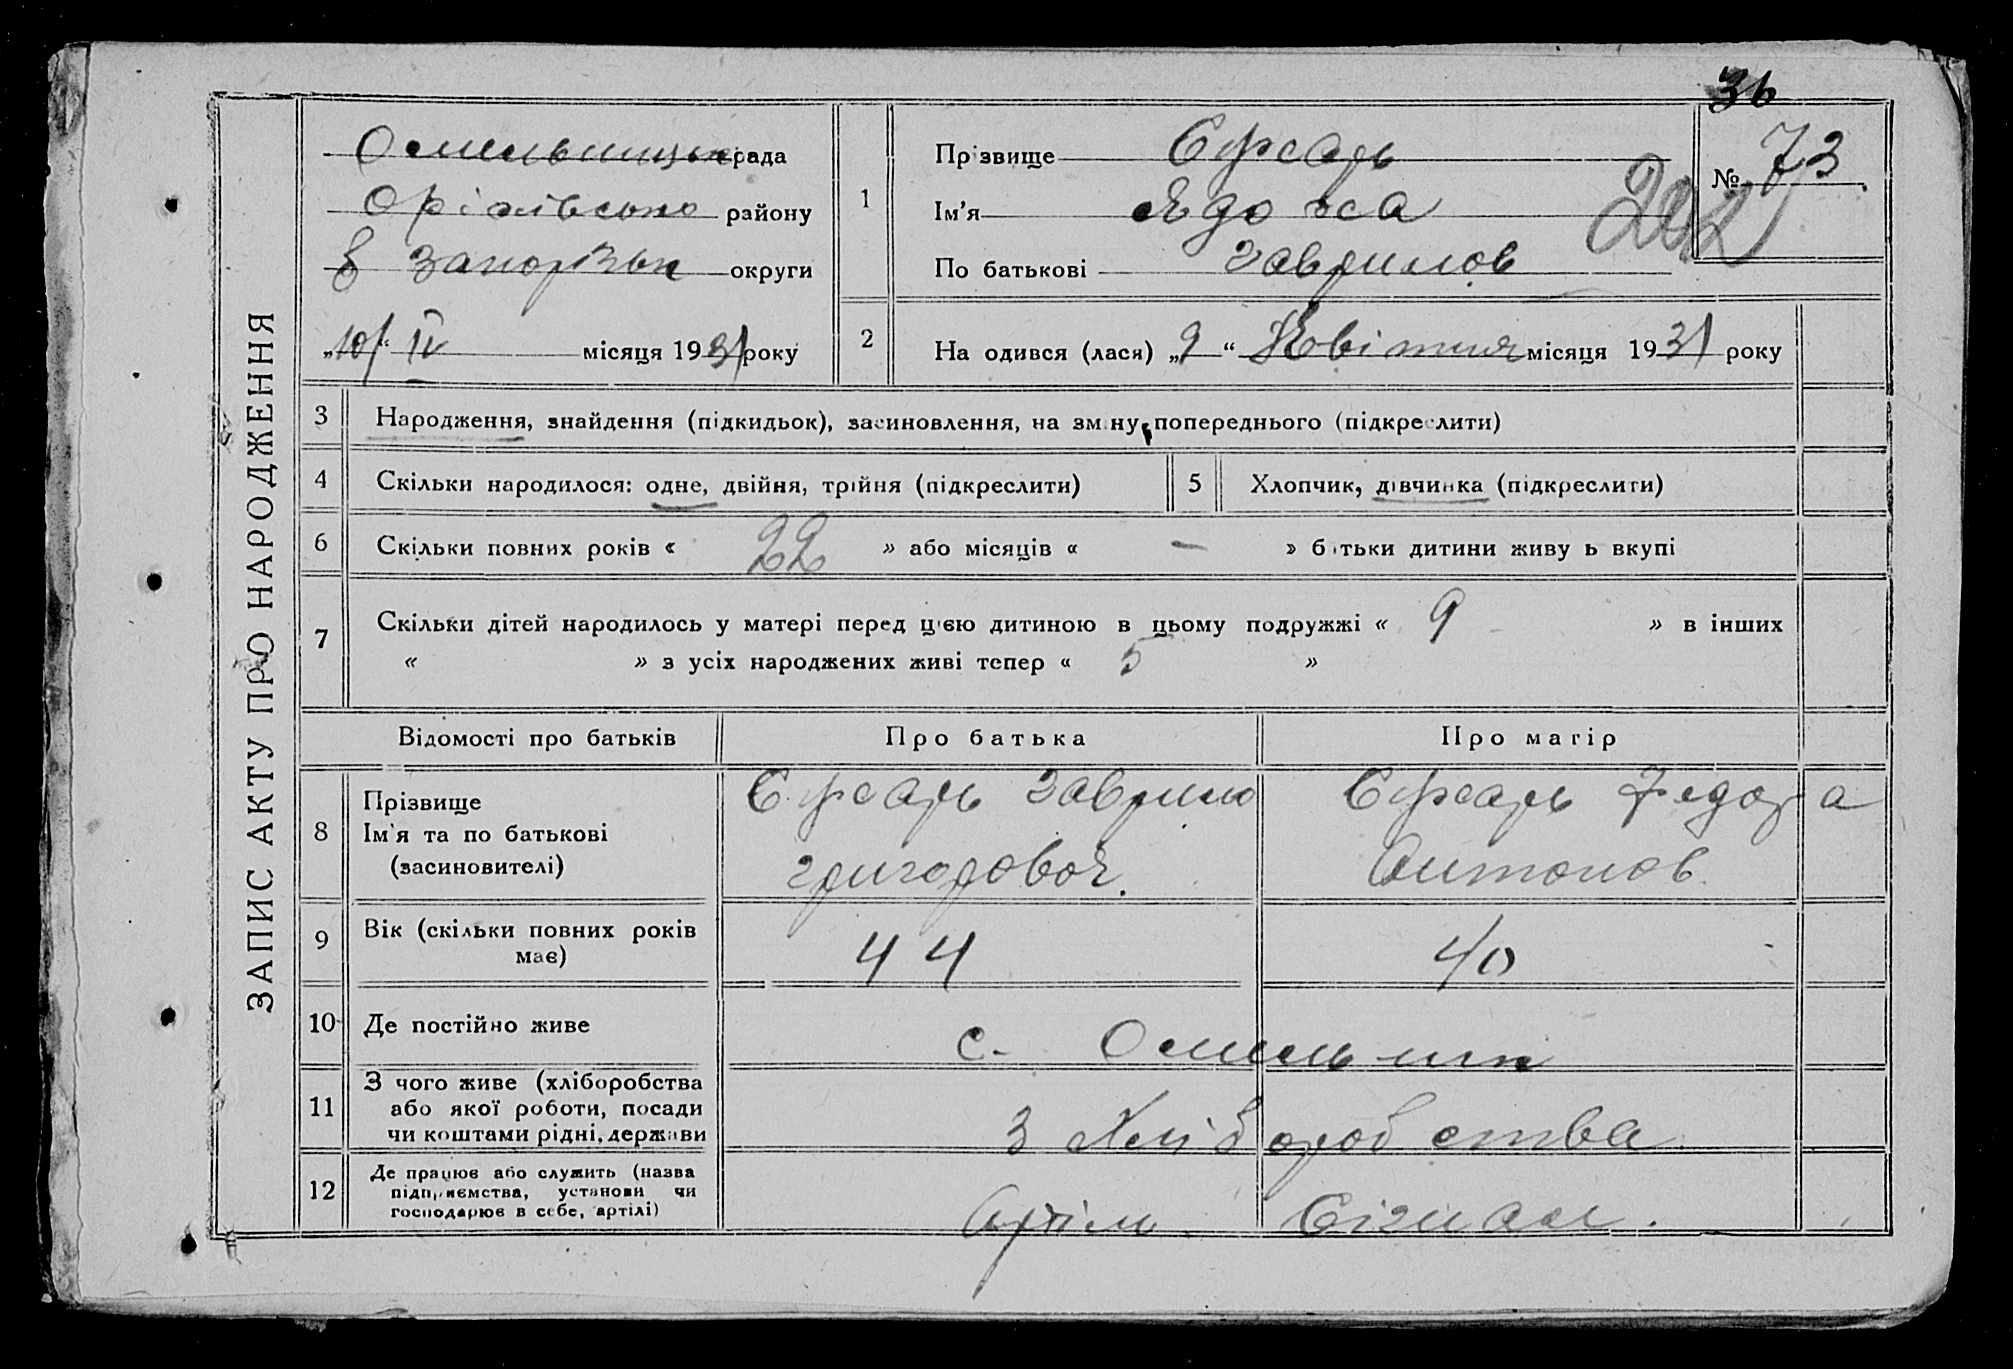 36
ЗАПИС АКТУ ПРО НАРОДЖЕННЯ
Омельницька рада
Оріхівсько району
в Запорізьк округи
„10“ IV місяця 1931 року
1
Прізвище Єрсарь
Ім'я
По батькові Гаврилов
№ 73
202
2
На одився (лася) „9“ Квітня місяця 1931 року
3 Народження, знайдення (підкидьок), засиновлення, на зміну попереднього (підкреслити)
4 Скільки народилося: одне, двійня, трійня (підкреслити)
5 Хлопчик, дівчинка (підкреслити)
6 Скільки повних років « 22 » або місяців « — » батьки дитини живу ь вкупі
7 Скільки дітей народилось у матері перед цією дитиною в цьому подружжі « 9 » в інших
« » з усіх народжених живі тепер « 5 »
Відомості про батьків Про батька Про матір
8 Прізвище
Ім'я та по батькові
(засиновителі)
Єрсарь Гаврило
Григоровоч.
Єрсарь Федора
Антонов
9 Вік (скільки повних років
має)
44 40
10 Де постійно живе
с. Омельник
11 З чого живе (хліборобства
або якої роботи, посади
чи коштами рідні, держави
З Хліборобства
12 Де працює або служить (назва
підприємства, установи чи
господарює в себе, артілі)
Артіль Сігнал.